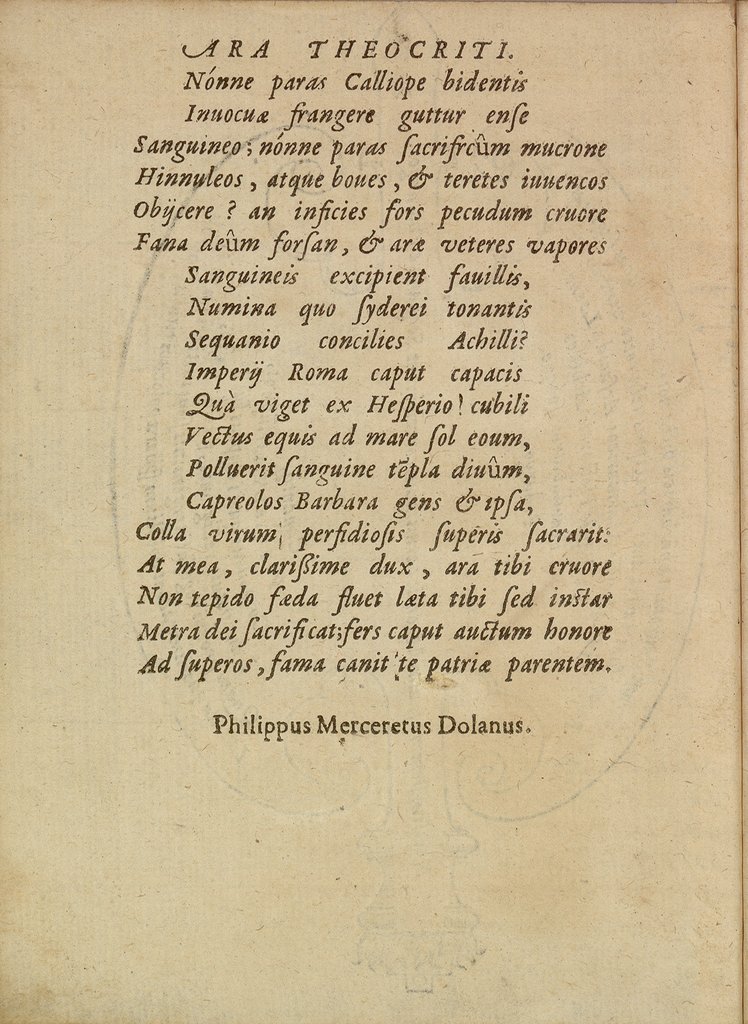 ARA THEOCRITI.
Nónne paras Calliope bidentis
Inuocuæ frangere guttur enſe
Sanguineo; nónne paras ſacrifrcûm mucrone
Hinnuleos, atque boues, & teretes iuuencos
Obijcere? an inficies fors pecudum cruore
Fana deûm forſan, & aræ veteres vapores
Sanguineis excipient fauillis,
Numina quo ſyderei tonantis
Sequanio concilies Achilli?
Imperij Roma caput capacis
Quà viget ex Heſperio! cubili
Vectus equis ad mare ſol eoum,
Polluerit ſanguine tẽpla diuûm,
Capreolos Barbara gens & ipſa,
Colla virum, perfidioſis ſuperis ſacrarit:
At mea, clarißime dux, ara tibi cruore
Non tepido fæda fluet læta tibi ſed inſtar
Metra dei ſacrificat; fers caput auctum honore
Ad ſuperos, fama canit te patriæ parentem.
Philippus Merceretus Dolanus.